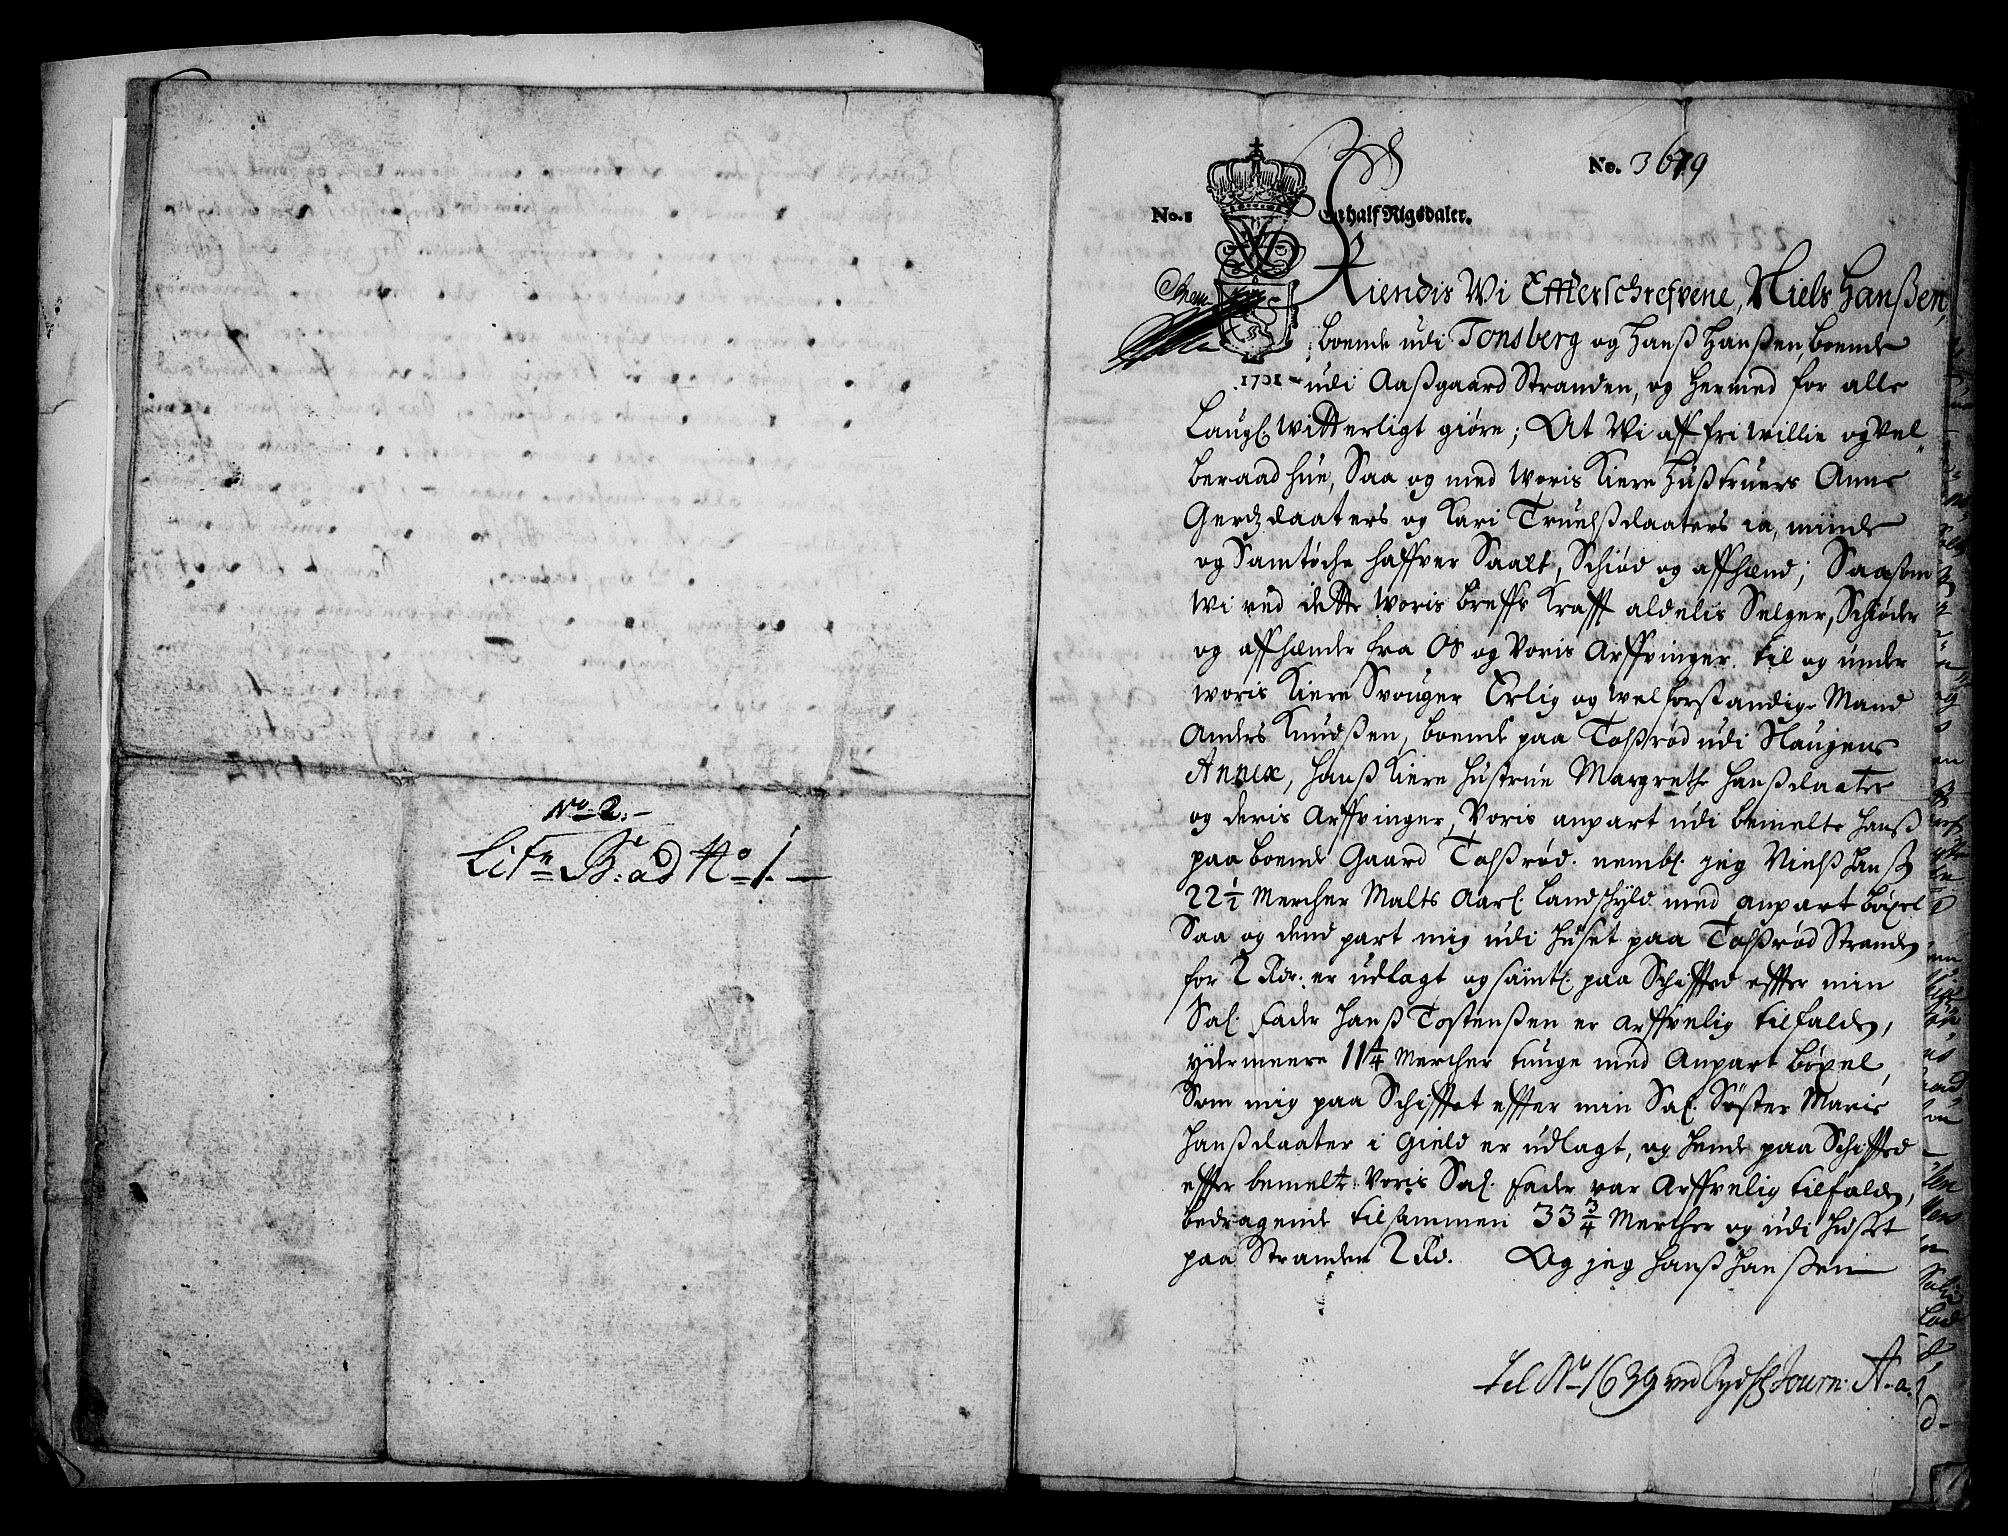 No. 2.
Litr B: ad No 1.
No. 3679
No. 1 En half Rigsdaler.
Kiendis Wi Effterschrefvene, Niels Hanßen,
boende udi Tonsberg og Hanß Hanßen, boende
1701 udi Aaßgaard Stranden, og hermed for alle
Laugl. witterligt giøre; At Wi aff fri willie og Vel-
beraad hue, Saa og med woris Kiere Hüßtruers Anne
Gertzdaaters og Kari Truelßdaaters ia, minde
og Samtöche haffver Saalt, Schiød og affhænd; Saasom
Wi ved dette woris breffs Krafft aldelis Selger, Schiøder
og affhænder fra Os og Voris Arffvinger, til og under
woris Kiere Svouger Erlig og welforstandige Mand
Anders Knudßen, boende paa Tolßrød udi Slaugens
Annex, hanß Kiere Hustrue Margrethe Hanßdaater
og deris Arffvinger, Voris anpart udi bemelte hanß
paa boende Gaard Tolßrød. nembl. jeg Nielß Hanß
22 1/2 Mercher Malts Aarl. Landschyld med anpart böxel
Saa og dend part mig udi Huset paa Tolßrød Stranden
for 2 Rdr. er udlagt og sämtl. paa Schifftet effter min
Sal. Fader Hanß Tostenßen er arffvelig tilfalden,
ydermeere 11 1/4 Mercher tunge med Anpart böxel,
Som mig paa Schifftet effter min Sal. Søster Maris
Hanßdaater i Gield er udlagt, og hende paa Schifftet
effter bemelte Voris Sal. Fader var Arffvelig tilfalden,
bedragende tilsammen 33 3/4 Mercher og udi Huset
paa Stranden 2 Rd. Og jeg Hanß Hanßen